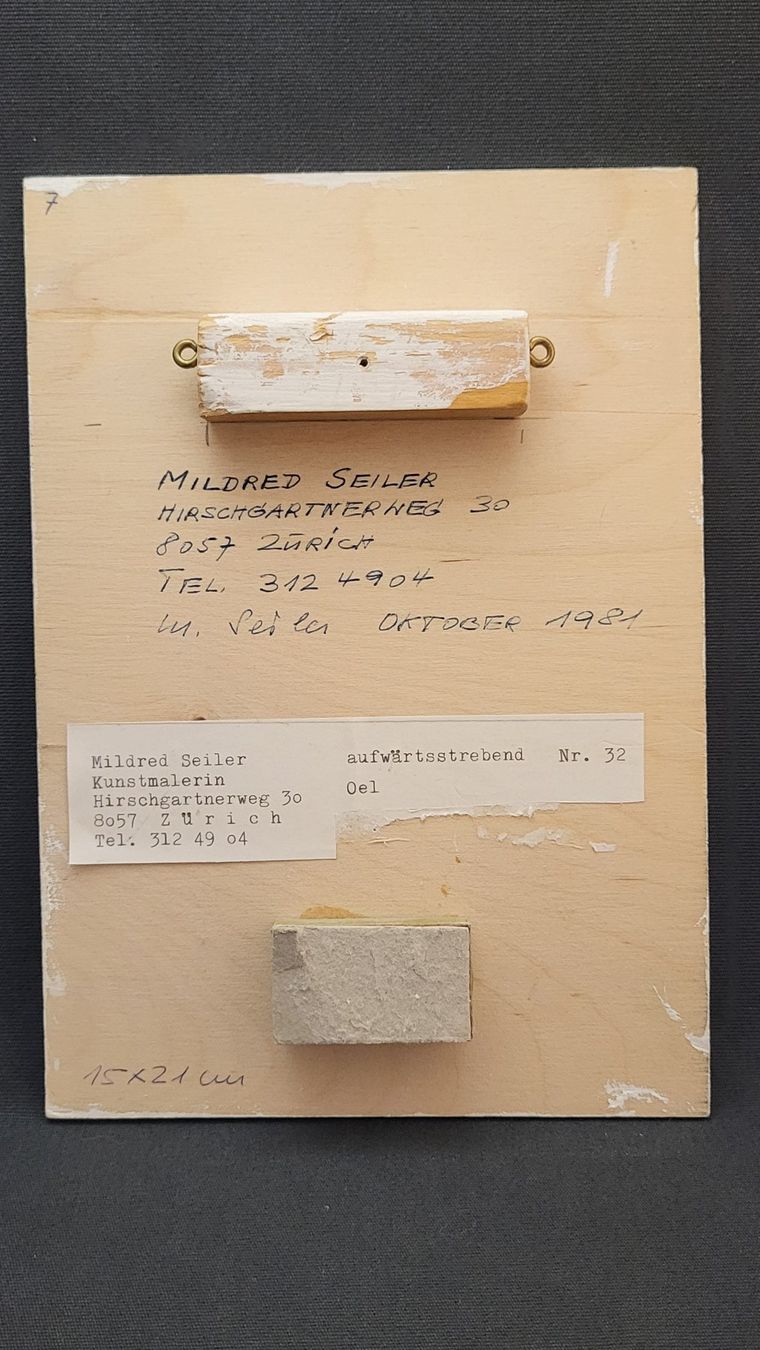 7
MILDRED SEILER
HIRSCHGARTNERWEG 30
8057 ZÜRICH
TEL. 312 4904
M. Seiler OKTOBER 1981
Mildred Seiler
Kunstmalerin
Hirschgartnerweg 3o
8o57 Z ü r i c h
Tel. 312 49 o4
aufwärtsstrebend Nr. 32
Oel
15x21 cm